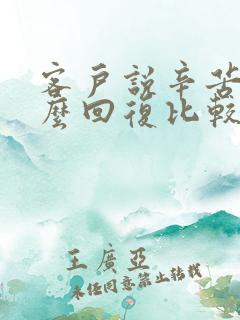 客戶說辛苦
麼回復比較
王廣亞
未經同意禁止轉載